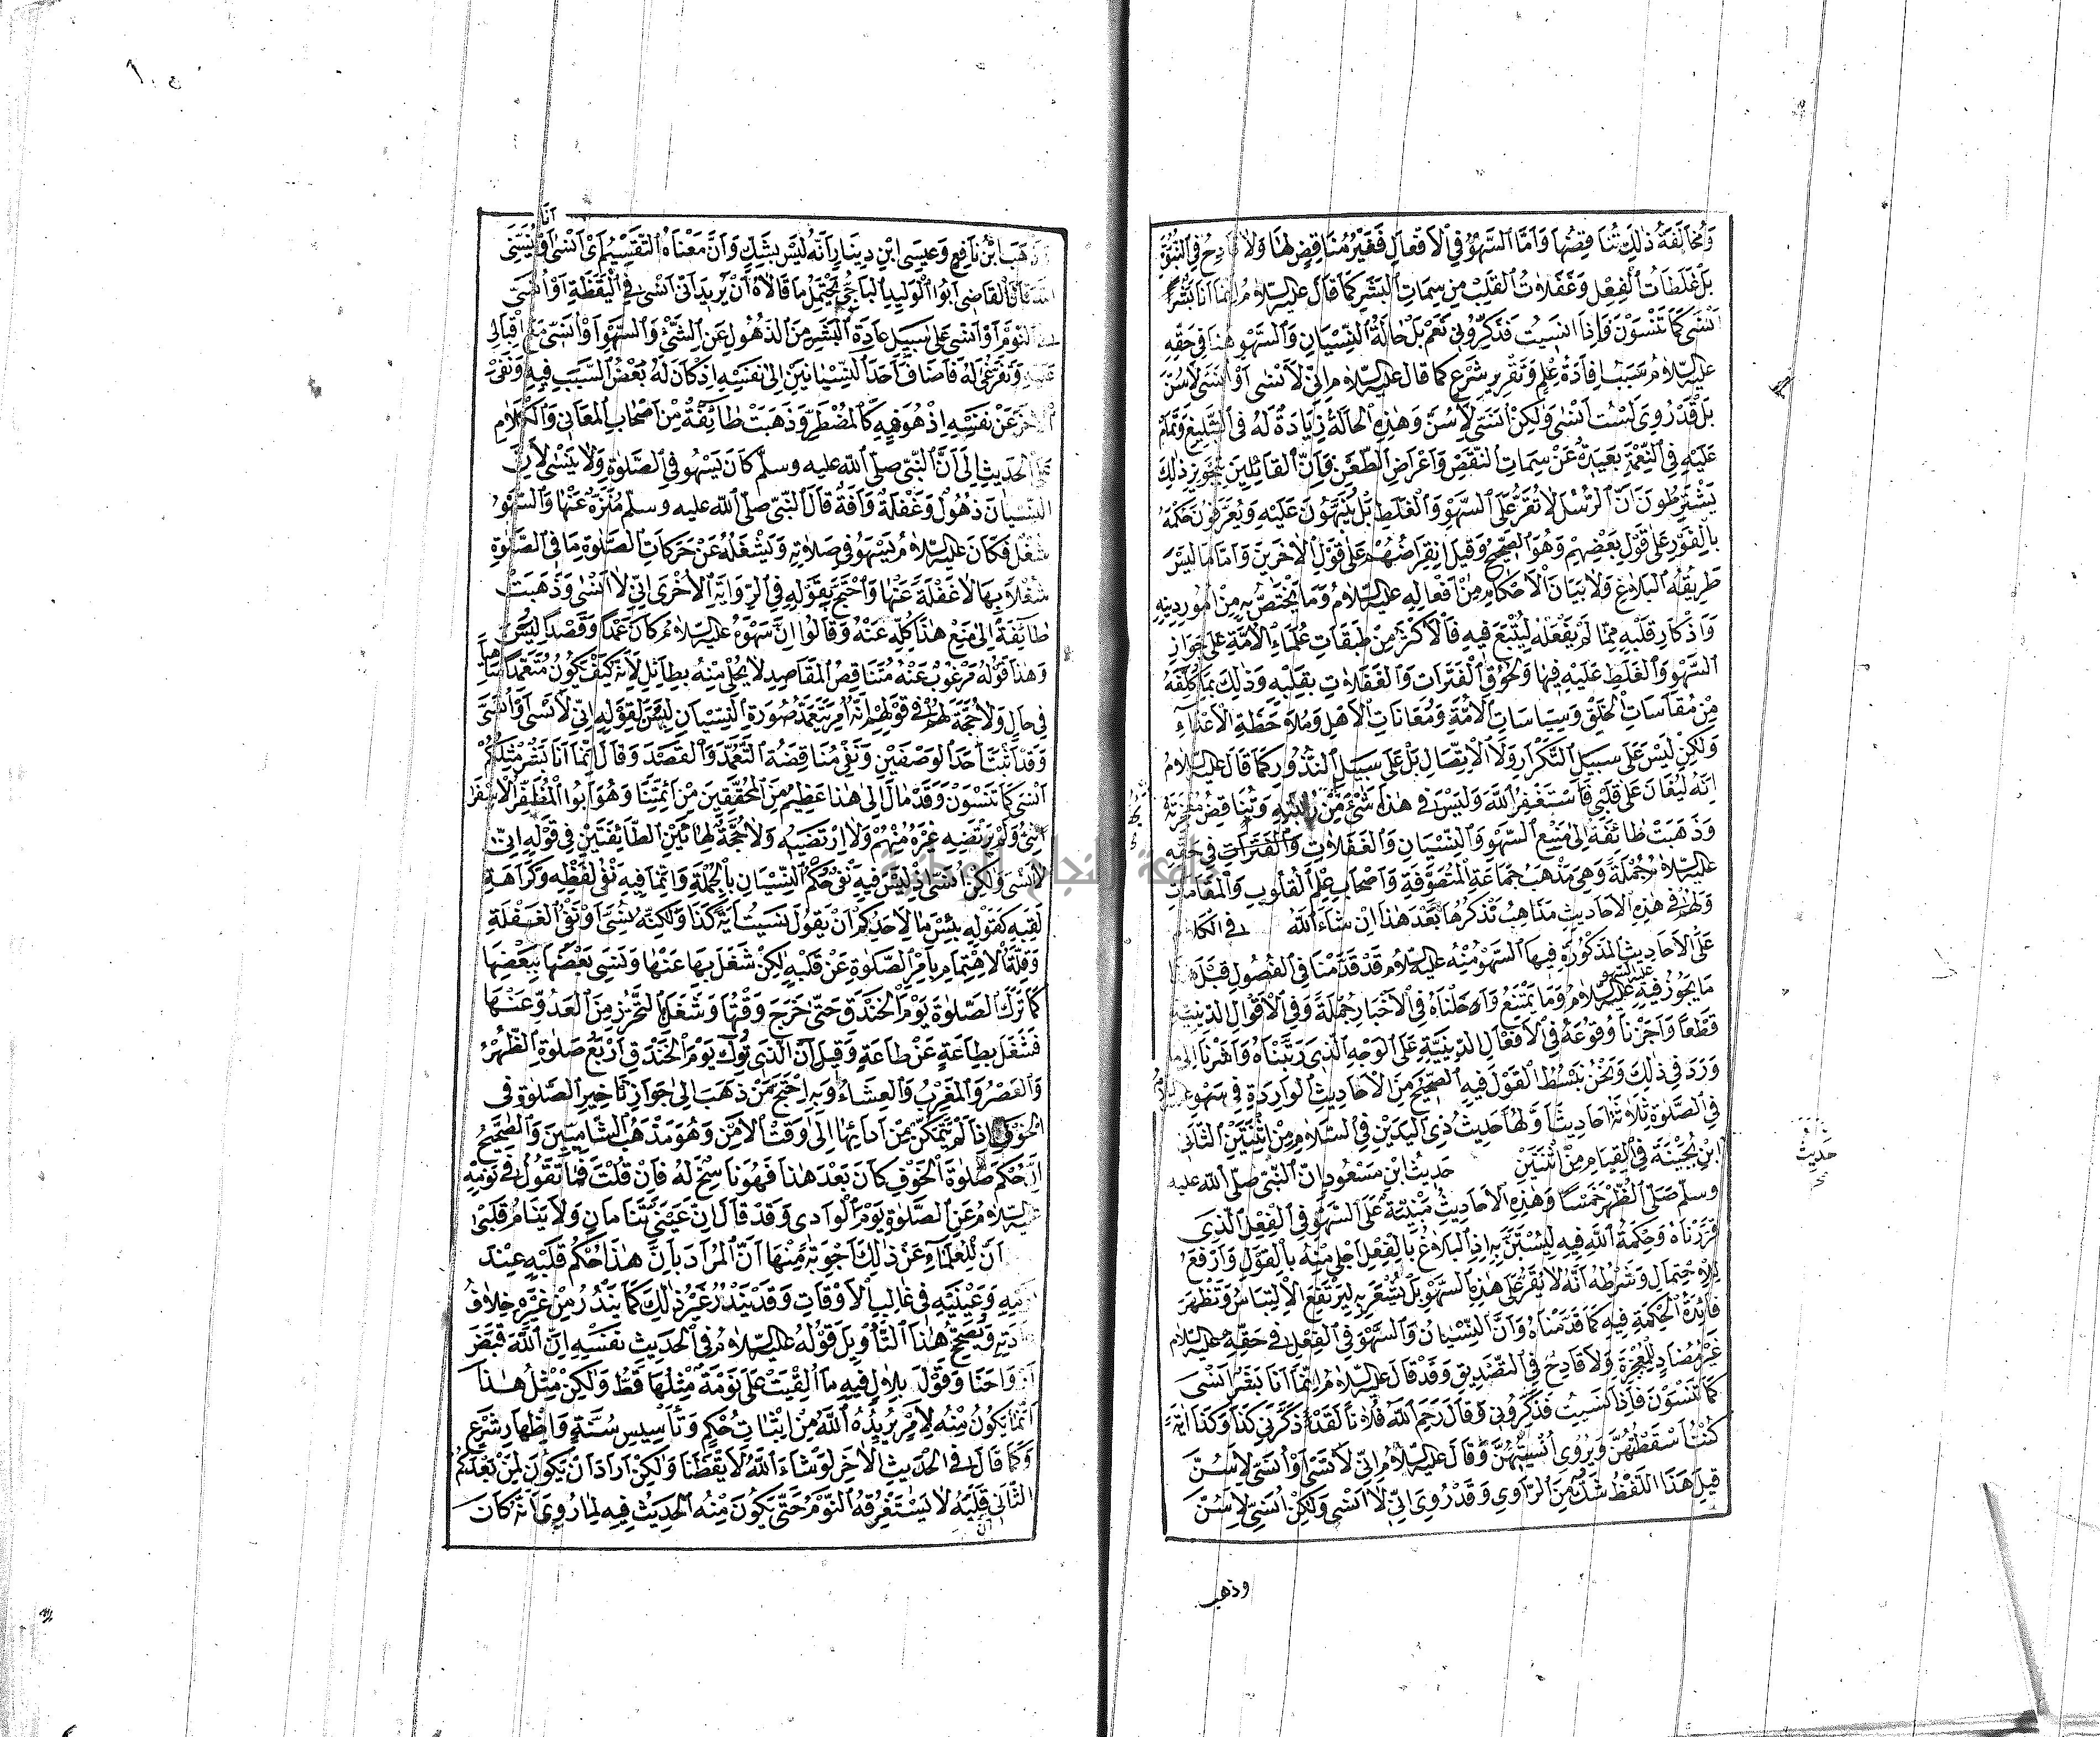 وَمُخَالَفَةُ ذٰلِكَ تُنَاقِضُهَا وَاَمَّا السَّهْوُ فِي الْاَفْعَالِ فَغَيْرُ مُنَاقِضٍ لَهَا وَلَا قَادِحٍ فِي النُّبُوَّةِ
بَلْ غَلَطَاتُ الْفِعْلِ وَغَفَلَاتُ الْقَلْبِ مِنْ سِمَاتِ الْبَشَرِ كَمَا قَالَ عليه السلام اِنَّمَا اَنَا بَشَرٌ
اَنْسَى كَمَا تَنْسَوْنَ وَاِذَا نَسِيتُ فَذَكِّرُونِي نَعَمْ بَلْ حَالَةُ النِّسْيَانِ وَالسَّهْوِ هُنَا فِي حَقِّهِ
عليه السلام سَبَبُ اِفَادَةُ عِلْمٍ وَتَقْرِيرِ شَرْعٍ كما قال عليه السلام اِنِّي لَاَنْسٰى اَوْ اُنَسَّى لِاَسُنَّ
بَلْ قَدْ رُوِيَ لَسْتُ اَنْسٰى وَلٰكِنْ اُنَسَّى لِاَسُنَّ وَهٰذِهِ الْحَالَةُ زِيَادَةٌ لَهُ فِي التَّبْلِيغِ وَتَمَامٌ
عَلَيْهِ فِي النِّعْمَةِ بَعِيدَةٌ عَنْ سِمَاتِ النَّقْصِ وَاَغْرَاضِ الطَّعْنِ فَاِنَّ الْقَائِلِينَ بِتَجْوِيزِ ذٰلِكَ
يَشْتَرِطُونَ اَنَّ الرُّسُلَ لَا تُقَرُّ عَلَى السَّهْوِ وَالْغَلَطِ بَلْ يُنَبَّهُونَ عَلَيْهِ وَيُعَرَّفُونَ حُكْمَهُ
بِالْفَوْرِ عَلٰى قَوْلِ بَعْضِهِمْ وَهُوَ الصَّحِيحُ وَقَبْلَ انْقِرَاضِهِمْ عَلٰى قَوْلِ الْاٰخَرِينَ وَاَمَّا مَا لَيْسَ
طَرِيقُهُ الْبَلَاغَ وَلَا بَيَانَ الْاَحْكَامِ مِنْ اَفْعَالِهِ عليه السلام وَمَا يَخْتَصُّ بِهِ مِنْ اُمُورِ دِينِهِ
وَاَذْكَارِ قَلْبِهِ مِمَّا لَمْ يَفْعَلْهُ لِيُتَّبَعَ فِيهِ فَالْاَكْثَرُ مِنْ طَبَقَاتِ عُلَمَاءِ الْاُمَّةِ عَلٰى جَوَازِ
السَّهْوِ وَالْغَلَطِ عَلَيْهِ فِيهَا وَلُحُوقِ الْفَتَرَاتِ وَالْغَفَلَاتِ بِقَلْبِهِ وَذٰلِكَ بِمَا كُلِّفَهُ
مِنْ مُقَاسَاتِ الْخَلْقِ وَسِيَاسَاتِ الْاُمَّةِ وَمُعَانَاتِ الْاَهْلِ وَمُلَاحَظَةِ الْاَعْدَاءِ
وَلٰكِنْ لَيْسَ عَلَى سَبِيلِ التَّكْرَارِ وَلَا الْاِتِّصَالِ بَلْ عَلَى سَبِيلِ النُّدُورِ كَمَا قَالَ عليه السلام
اِنَّهُ لَيُغَانُ عَلٰى قَلْبِي فَاَسْتَغْفِرُ اللّٰهَ وَلَيْسَ فِي هٰذَا شَيْءٌ مِنْ رُتْبَتِهِ وَيُنَاقِضُ مُعْجِزَتَهُ
وَذَهَبَتْ طَائِفَةٌ اِلٰى مَنْعِ السَّهْوِ وَالنِّسْيَانِ وَالْغَفَلَاتِ وَالْفَتَرَاتِ فِي حَقِّهِ
عليه السلام جُمْلَةً وَهِيَ مَذْهَبُ جَمَاعَةِ الْمُتَصَوِّفَةِ وَاَصْحَابِ عِلْمِ الْقُلُوبِ وَالْمَقَامَاتِ
وَلَهُمْ فِي هٰذِهِ الْاَحَادِيثِ مَذَاهِبُ نَذْكُرُهَا بَعْدَ هٰذَا اِنْ شَاءَ اللّٰهُ فِي الْكَلَامِ
عَلَى الْاَحَادِيثِ الْمَذْكُورَةِ فِيهَا السَّهْوُ مِنْهُ عليه السلام قَدْ قَدَّمْنَا فِي الْفُصُولِ قَبْلَ
مَا يَجُوزُ فِيهِ عليه السهو عليه السلام وَمَا يَمْتَنِعُ وَاَحَلْنَاهُ فِي الْاَخْبَارِ جُمْلَةً وَفِي الْاَقْوَالِ الدِّينِيَّةِ
قَطْعًا وَاَجَزْنَا وُقُوعَهُ فِي الْاَفْعَالِ الدِّينِيَّةِ عَلَى الْوَجْهِ الَّذِي رَتَّبْنَاهُ وَاَشَرْنَا اِلٰى مَا
وَرَدَ فِي ذٰلِكَ وَنَحْنُ نَبْسُطُ الْقَوْلَ فِيهِ الصَّحِيحُ مِنَ الْاَحَادِيثِ الْوَارِدَةِ فِي سَهْوِهِ عليه السلام
فِي الصَّلٰوةِ ثَلَاثَةُ اَحَادِيثَ اَوَّلُهَا حَدِيثُ ذِي الْيَدَيْنِ فِي السَّلَامِ مِنِ اثْنَتَيْنِ الثَّانِي
ابْنِ بُحَيْنَةَ فِي الْقِيَامِ مِنِ اثْنَتَيْنِ حَدِيثُ ابْنِ مَسْعُودٍ اِنَّ النَّبِيَّ صلّى اللّٰه عليه
وسلم صَلَّى الظُّهْرَ خَمْسًا وَهٰذِهِ الْاَحَادِيثُ مَبْنِيَّةٌ عَلَى السَّهْوِ فِي الْفِعْلِ الَّذِي
قَرَّرْنَاهُ وَحِكْمَةُ اللّٰهِ فِيهِ لِيُسْتَنَّ بِهِ اِذِ الْبَلَاغُ بِالْفِعْلِ اَجْلٰى مِنْهُ بِالْقَوْلِ وَاَرْفَعُ
لِلْاِحْتِمَالِ وَشَرْطُهُ اَنَّهُ لَا يُقَرُّ عَلٰى هٰذِهِ السَّهْوِ بَلْ يُشْعَرُ بِهِ لِيَرْتَفِعَ الْاِلْتِبَاسُ وَتَظْهَرَ
فَائِدَةُ الْحِكْمَةِ فِيهِ كَمَا قَدَّمْنَاهُ وَاَنَّ النِّسْيَانَ وَالسَّهْوَ فِي الْفِعْلِ فِي حَقِّهِ عليه السلام
غَيْرُ مُضَادٍّ لِلْمُعْجِزَةِ وَلَا قَادِحٍ فِي التَّصْدِيقِ وَقَدْ قَالَ عليه السلام اِنَّمَا اَنَا بَشَرٌ اَنْسَى
كَمَا تَنْسَوْنَ فَاِذَا نَسِيتُ فَذَكِّرُونِي وَقَالَ رَحِمَ اللّٰهُ فُلَانًا لَقَدْ ذَكَّرَنِي كَذَا وَكَذَا اٰيَةً
كُنْتُ اَسْقَطْتُهُنَّ وَيُرْوٰى اُنْسِيتُهُنَّ وَقَالَ عليه السلام اِنِّي لَاَنْسٰى اَوْ اُنَسَّى لِاَسُنَّ
قِيلَ هَذَا اللَّفْظُ شَكٌّ مِنَ الرَّاوِي وَقَدْ رُوِيَ اِنِّي لَا اَنْسٰى وَلٰكِنْ اُنَسَّى لِاَسُنَّ
وذهب
حديث
ابْنُ نَافِعٍ وَعِيسَى ابْنِ دِينَارٍ اَنَّهُ لَيْسَ بِشَكٍّ وَاَنَّ مَعْنَاهُ التَّقْسِيمُ اَيْ اَنْسٰى اَنَا اَوْ يُنَسِّينِي
اللّٰهُ قَالَ الْقَاضِي اَبُوا الْوَلِيدِ الْبَاجِيُّ يَحْتَمِلُ مَا قَالَاهُ اَنْ يُرِيدَ اَنِّي اَنْسٰى فِي الْيَقَظَةِ اَوْ اُنَسَّى
النَّوْمِ اَوْ اَنْسٰى عَلٰى سَبِيلِ عَادَةِ الْبَشَرِ مِنَ الذُّهُولِ عَنِ الشَّيْءِ وَالسَّهْوِ اَوْ اُنَسَّى مَعَ اِقْبَالِي
عَلَيْهِ وَتَفَرُّغِي لَهُ فَاَضَافَ اَحَدَ النِّسْيَانَيْنِ اِلٰى نَفْسِهِ اِذْ كَانَ لَهُ بَعْضُ السَّبَبِ فِيهِ وَنَفَى
الْاٰخَرَ عَنْ نَفْسِهِ اِذْ هُوَ فِيهِ كَالْمُضْطَرِّ وَذَهَبَتْ طَائِفَةٌ مِنْ اَصْحَابِ الْمَعَانِي وَالْكَلَامِ
الْحَدِيثِ اِلٰى اَنَّ النَّبِيَّ صلّى اللّٰه عليه وسلم كَانَ يَسْهُو فِي الصَّلٰوةِ وَلَا يَنْسٰى لِاَنَّ
النِّسْيَانَ ذُهُولٌ وَغَفْلَةٌ وَاٰفَةٌ قَالَ النَّبِيُّ صلّى اللّٰه عليه وسلم مُنَزَّهٌ عَنْهَا وَالسَّهْوُ
شُغْلٌ فَكَانَ عليه السلام يَسْهُو فِي صَلَاتِهِ وَيَشْغَلُهُ عَنْ حَرَكَاتِ الصَّلٰوةِ مَا فِي الصَّلٰوةِ
شُغْلًا بِهَا لَا غَفْلَةً عَنْهَا وَاحْتَجَّ بِقَوْلِهِ فِي الرِّوَايَةِ الْاُخْرَى اِنِّي لَا اَنْسٰى وَذَهَبَتْ
طَائِفَةٌ اِلٰى مَنْعِ هٰذَا كُلِّهِ عَنْهُ وَقَالُوا اِنَّ سَهْوَهُ عليه السلام كَانَ عَمْدًا وَقَصْدًا لِيَسُنَّ
وَهٰذَا قَوْلٌ مَرْغُوبٌ عَنْهُ مُتَنَاقِضُ الْمَقَاصِدِ لَا يُحْلٰى مِنْهُ بِطَائِلٍ لِاَنَّهُ كَيْفَ يَكُونُ مُتَعَمِّدًا سَاهِيًا
فِي حَالٍ وَلَا حُجَّةَ لَهُمْ فِي قَوْلِهِمْ اِنَّهُ اُمِرَ بِتَعَمُّدِ صُورَةِ النِّسْيَانِ لِيَسُنَّ لِقَوْلِهِ اِنِّي لَاَنْسٰى اَوْ اُنَسَّى
وَقَدْ اَثْبَتَ اَحَدَ الْوَصْفَيْنِ وَنَفَى مُنَاقَضَةَ التَّعَمُّدِ وَالْقَصْدِ وَقَالَ اِنَّمَا اَنَا بَشَرٌ مِثْلُكُمْ
اَنْسٰى كَمَا تَنْسَوْنَ وَقَدْ مَالَ اِلٰى هٰذَا عَظِيمٌ مِنَ الْمُحَقِّقِينَ مِنْ اَئِمَّتِنَا وَهُوَ اَبُوا الْمُظَفَّرِ الْاِسْفَرَا
ئِنِيُّ وَلَمْ يَرْتَضِهِ غَيْرُهُ مِنْهُمْ وَلَا اَرْتَضِيهِ وَلَا حُجَّةَ لِهَاتَيْنِ الطَّائِفَتَيْنِ فِي قَوْلِهِ اِنِّي
لَا اَنْسٰى وَلٰكِنْ اُنَسَّى اِذْ لَيْسَ فِيهِ نَفْيُ حُكْمِ النِّسْيَانِ بِالْجُمْلَةِ وَاِنَّمَا فِيهِ نَفْيُ لَفْظِهِ وَكَرَاهَةِ
لَقَبِهِ كَقَوْلِهِ بِئْسَ مَا لِاَحَدِكُمْ اَنْ يَقُولَ نَسِيتُ اٰيَةَ كَذَا وَلٰكِنَّهُ نُسِّيَ اَوْ نَفْيُ الْغَفْلَةِ
وَقِلَّةِ الْاِهْتِمَامِ بِاَمْرِ الصَّلٰوةِ عَنْ قَلْبِهِ لٰكِنْ شُغِلَ بِهَا عَنْهَا وَنَسِيَ بَعْضَهَا بِبَعْضِهَا
كَمَا تَرَكَ الصَّلٰوةَ يَوْمَ الْخَنْدَقِ حَتّٰى خَرَجَ وَقْتُهَا وَشُغِلَ بِالتَّحَرُّزِ مِنَ الْعَدُوِّ عَنْهَا
فَشُغِلَ بِطَاعَةٍ عَنْ طَاعَةٍ وَقِيلَ اَنَّ الَّذِي تُرِكَ يَوْمَ الْخَنْدَقِ اَرْبَعُ صَلٰوةٍ الظُّهْرُ
وَالْعَصْرُ وَالْمَغْرِبُ وَالْعِشَاءُ وَبِهِ اِحْتَجَّ مَنْ ذَهَبَ اِلٰى جَوَازِ تَاْخِيرِ الصَّلٰوةِ فِي
الْخَوْفِ اِذَا لَمْ يَتَمَكَّنْ مِنْ اَدَائِهَا اِلٰى وَقْتِ الْاَمْنِ وَهُوَ مَذْهَبُ الشَّامِيِّينَ وَالصَّحِيحُ
اَنَّ حُكْمَ صَلٰوةِ الْخَوْفِ كَانَ بَعْدَ هٰذَا فَهُوَ نَاسِخٌ لَهُ فَاِنْ قُلْتَ فَمَا تَقُولُ فِي نَوْمِهِ
عليه السلام عَنِ الصَّلٰوةِ يَوْمَ الْوَادِي وَقَدْ قَالَ اِنَّ عَيْنَيَّ تَنَامَانِ وَلَا يَنَامُ قَلْبِي
اَنَّ لِلْعُلَمَاءِ عَنْ ذٰلِكَ اَجْوِبَةً مِنْهَا اَنَّ الْمُرَادَ بِاَنَّ هٰذَا حُكْمُ قَلْبِهِ عِنْدَ
نَوْمِهِ وَعَيْنَيْهِ فِي غَالِبِ الْاَوْقَاتِ وَقَدْ يَنْدُرُ غَيْرُ ذٰلِكَ كَمَا يَنْدُرُ مِنْ غَيْرِهِ خِلَافُ
عَادَتِهِ وَيُصَحِّحُ هٰذَا التَّاْوِيلَ قَوْلُهُ عليه السلام فِي الْحَدِيثِ نَفْسِهِ اِنَّ اللّٰهَ قَبَضَ
اَرْوَاحَنَا وَقَوْلُ بِلَالٍ فِيهِ مَا اُلْقِيَتْ عَلَيَّ نَوْمَةٌ مِثْلُهَا قَطُّ وَلٰكِنْ مِثْلُ هٰذَا
اِنَّمَا يَكُونُ مِنْهُ لِاَمْرٍ يُرِيدُهُ اللّٰهُ مِنْ اِثْبَاتِ حُكْمٍ وَتَاْسِيسِ سُنَّةٍ وَاِظْهَارِ شَرْعٍ
وَكَمَا قَالَ فِي الْحَدِيثِ الْاٰخَرِ لَوْ شَاءَ اللّٰهُ لَاَيْقَظَنَا وَلٰكِنْ اَرَادَ اَنْ يَكُونَ لِمَنْ بَعْدَكُمْ
الثَّانِي اَنَّ قَلْبَهُ لَا يَسْتَغْرِقُهُ النَّوْمُ حَتّٰى يَكُونَ مِنْهُ الْحَدِيثُ فِيهِ لِمَا رُوِيَ اَنَّهُ كَانَ
جامعة النجاح الوطنية